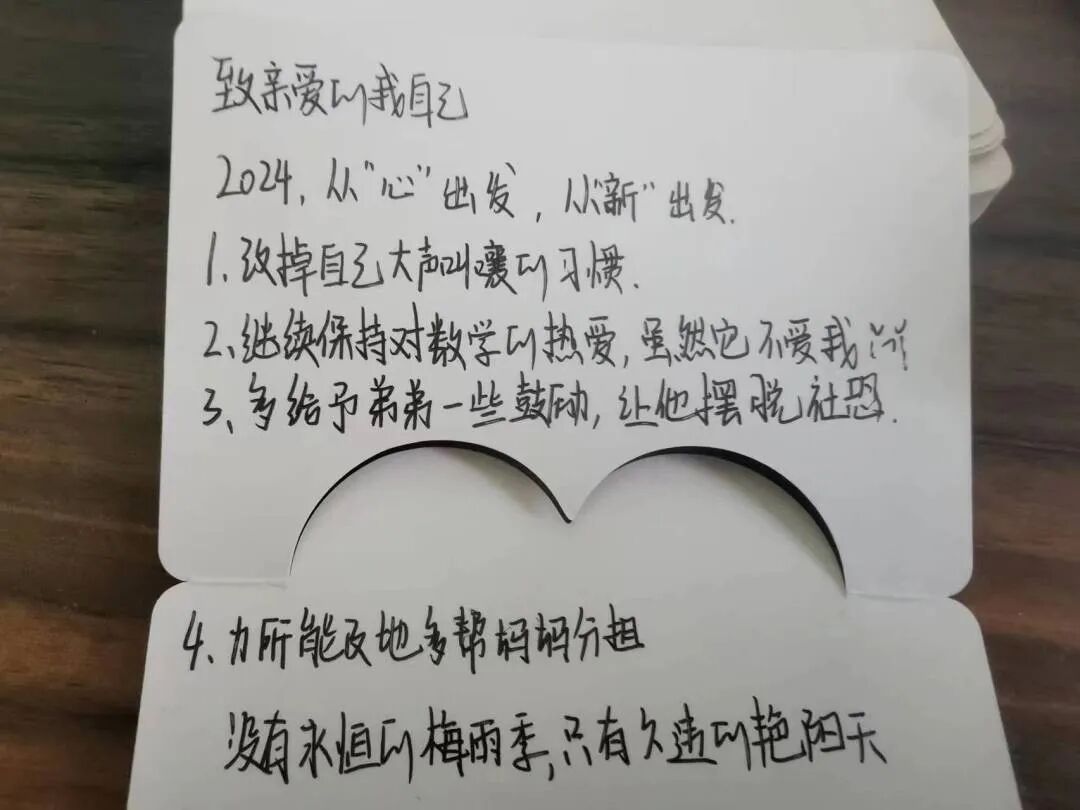 致亲爱的我自己
2024，从“心”出发，从“新”出发.
1、改掉自己大声叫嚷的习惯.
2、继续保持对数学的热爱，虽然它不爱我
3、多给予弟弟一些鼓励，让他摆脱社恐.
4、力所能及地多帮妈妈分担
没有永恒的梅雨季，只有久违的艳阳天